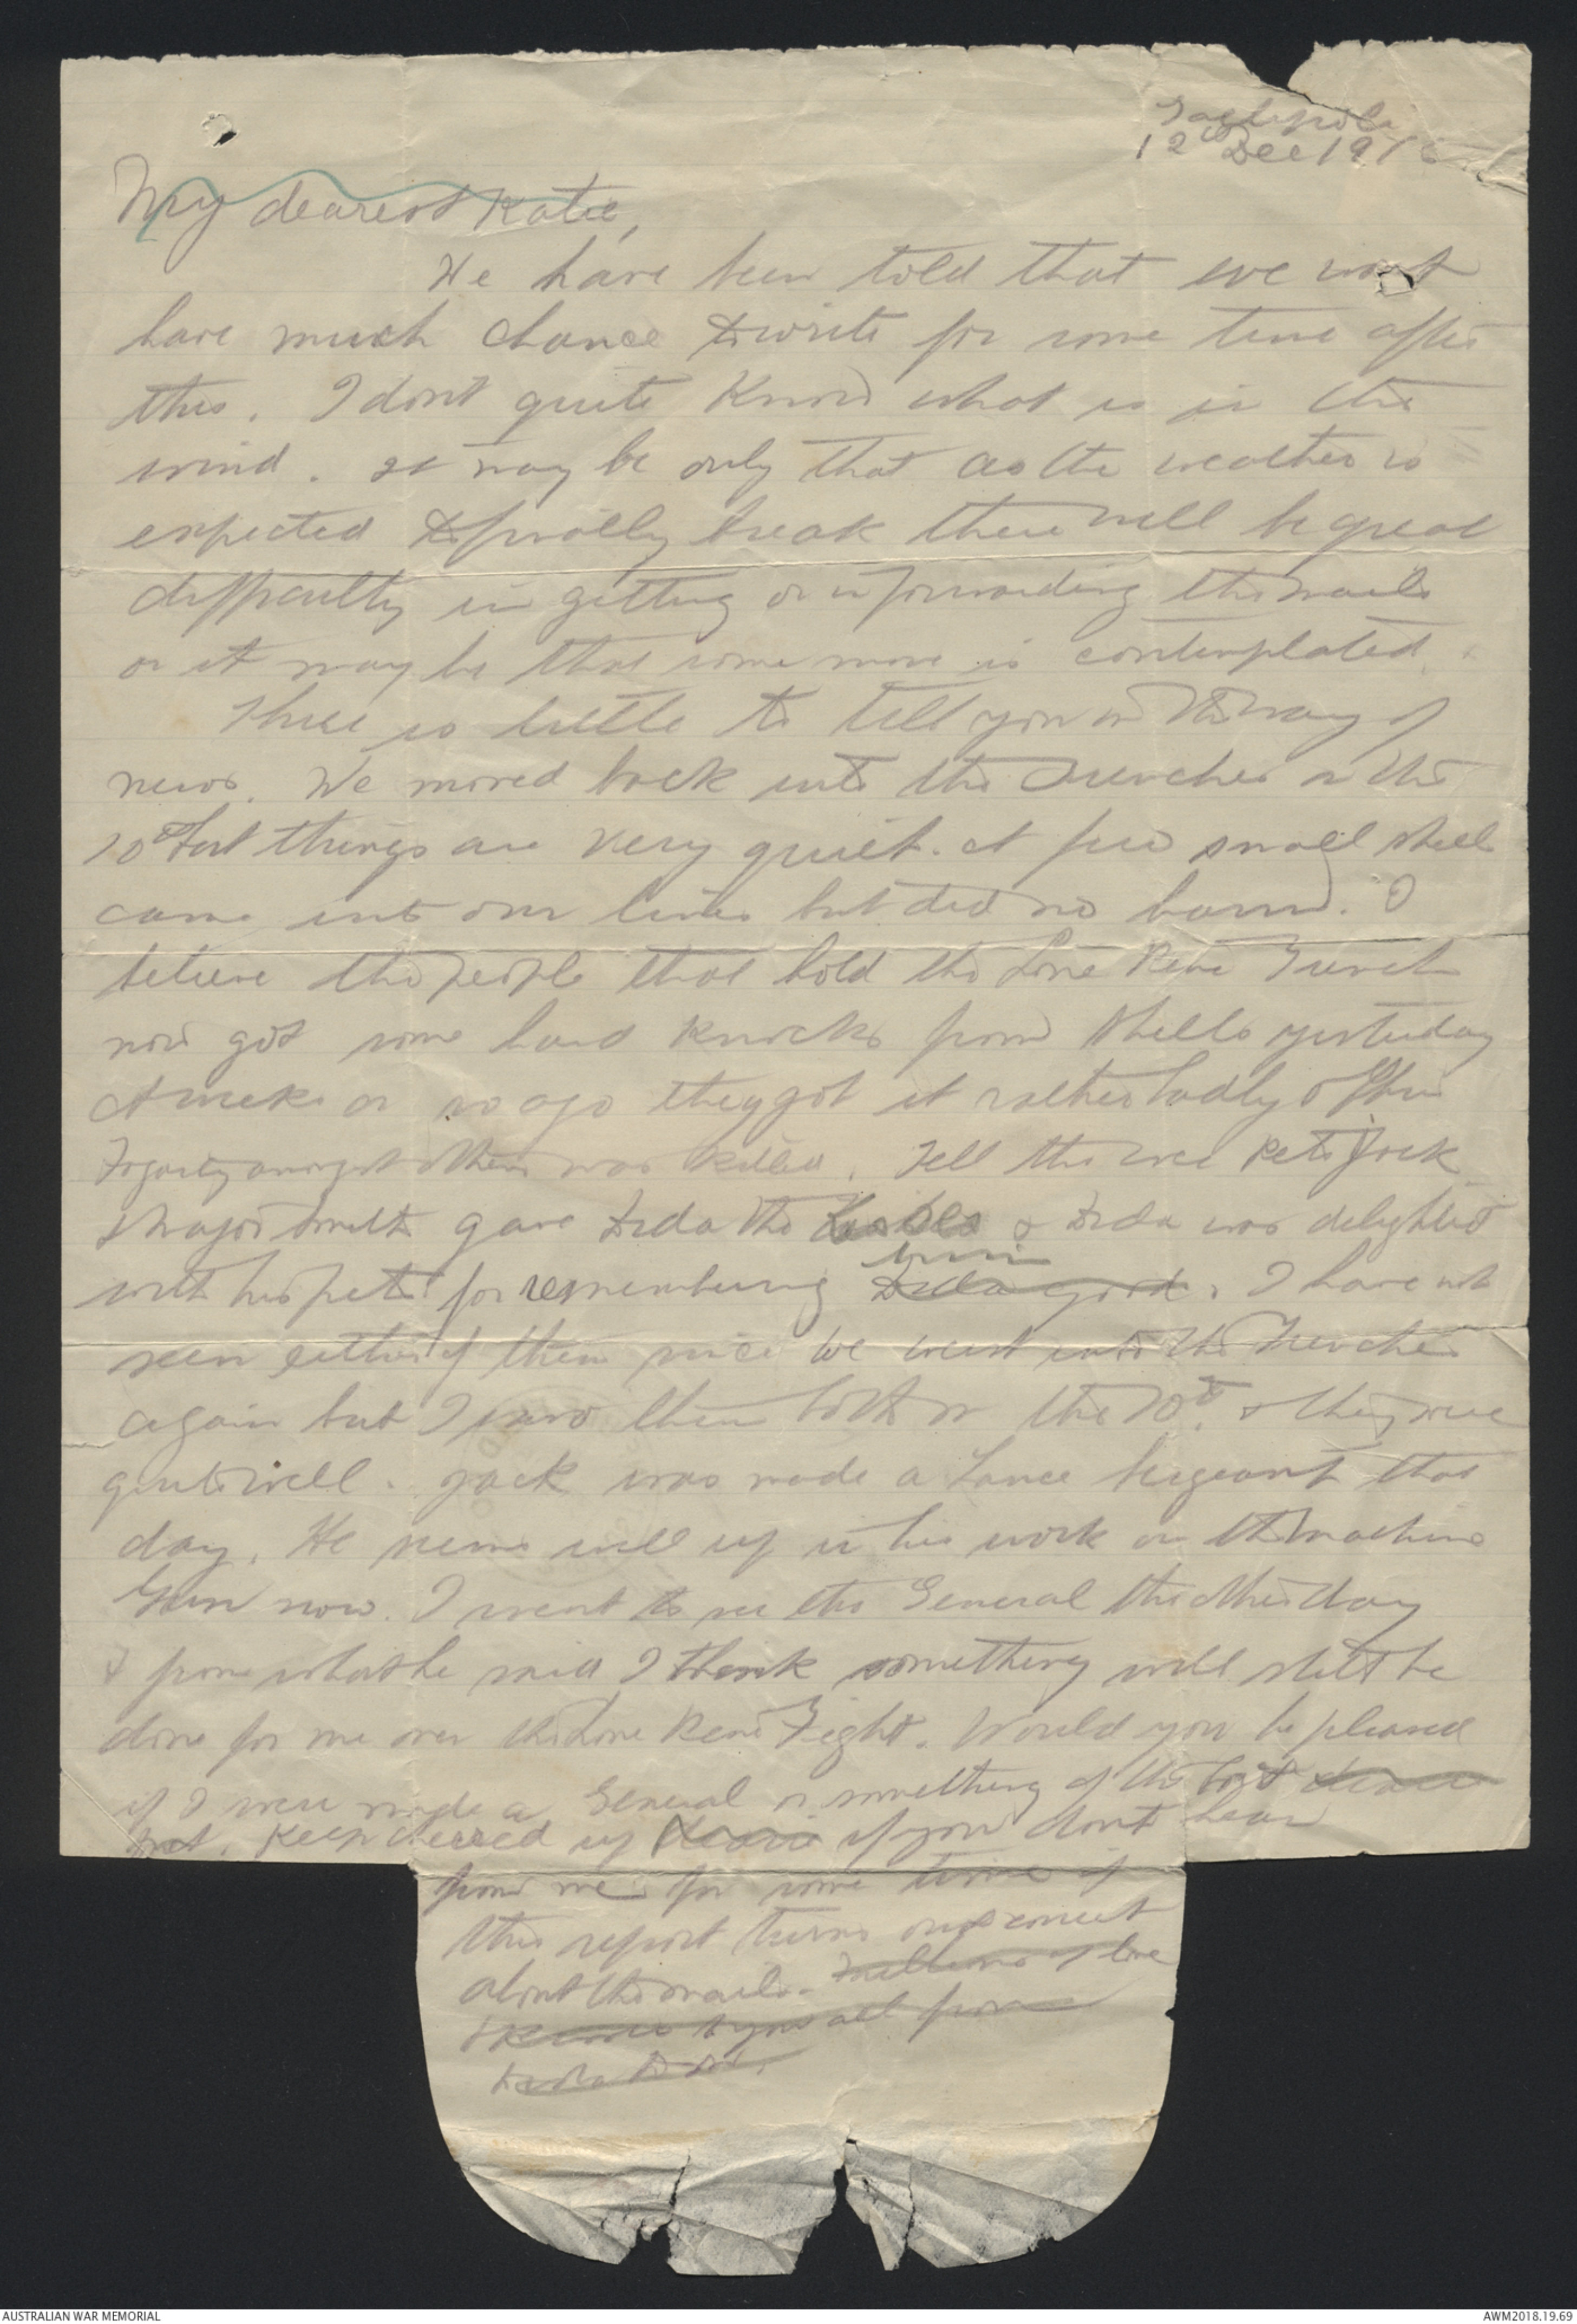 Gallipoli
12th Dec 191
My dearest Katie,
We have been told that we wont
have much chance to write for some time after
this. I dont quite know what is in the
wind. It may be only that as the weather is
expected to finally break there will be great
difficulty in getting or in forwarding the mails
or it may be that some move is contemplated.
There is little to tell you in the way of
news. We moved back into the trenches on the
10th but things are very quiet. A few small shells
came into our lines but did no harm. I
believe the people that hold the Lone Pine Trench
now got some hard knocks from shells yesterday
A week or so ago they got it rather badly &
Fogarty amongst them was killed. Tell the wee pets Jack
& Major Smith gave Dida the & Dida was delighted
with his pets for remembering him Dida good. I have not
seen either of them since we went into the trenches
again but I saw them both on the 10th. & they were
quite well. Jack was made a Lance Sergeant that
day. He seems well up in his work on the machine
Gun now. I went to see the General the other day
& from what he said I think something will still be
done for me over the Lone Pine Fight. Would you be pleased
if I were made a General or something of the sort dearie
pet. Keep cheered up dearie if you dont hear
from me for some time if
this report turns out correct
about the mails. Millions of love
& kisses to you all from
Dida
AUSTRALIAN WAR MEMORIAL
AWM2018.19.69